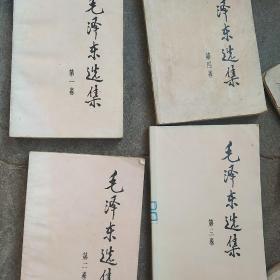 毛泽东选集
第一卷
泽东选集
第四卷
毛泽东选集
第二卷
毛泽东选集
第三卷